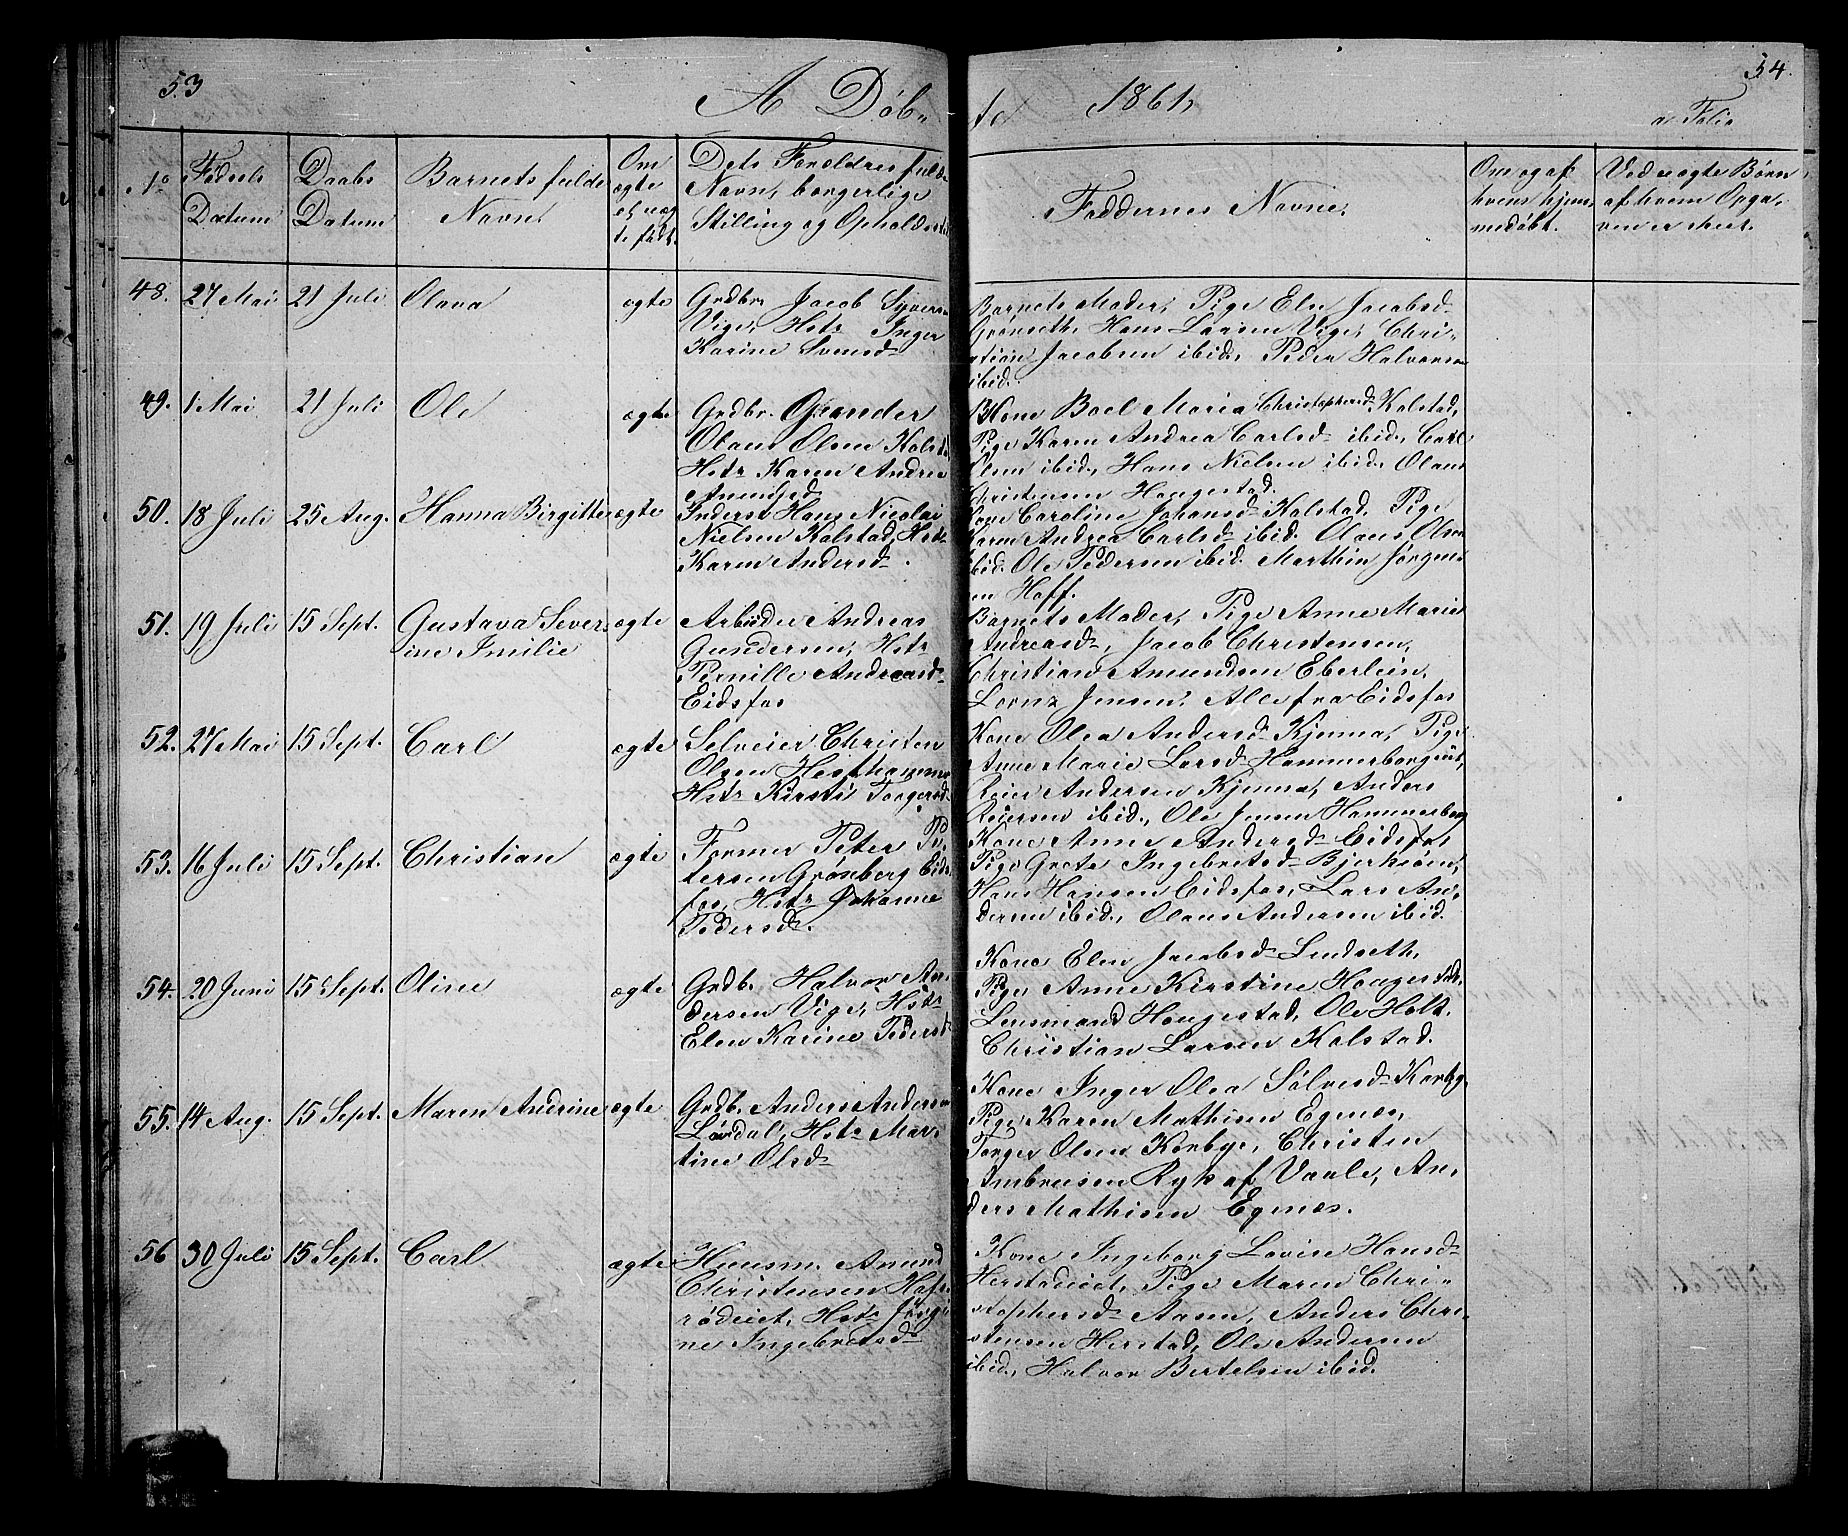 53
A Døb-
No
Fødsels
Datum
Daabs
Datum
Barnets fulde
Navn.
Om
ægte
el. uæg
te født.
Dets Forældres fulde
Navn, borgerlige
Stilling og Opholdssted
48. 27 Mai 21 Juli Olava ægte Grdbr. Jacob Syversen
Vige, Hstr Inger
Karine Svensd
49. 1 Mai 21 Juli Ole ægte Grdbr. Gunder
Olaus Olsen Kolstad
Hstr Karen Andrea
Amundsd
50. 18 Juli 25 Aug. Hanna Birgitte ægte Inderst Hans Nicolai
Nielsen Kolstad, Hstr
Karen Andersd.
51. 19 Juli 15 Sept. Gustava Sever- ægte Arbeider Andreas
ine Imilie Gundersen, Hstr
Pernille Andreasd
Eidsfos
52. 27 Mai 15 Sept. Carl ægte Selveier Christen
Olsen Hesthammer
Hstr Kirsti Torgersd
53. 16 Juli 15 Sept. Christian ægte Former Peter Pe-
tersen Grønberg Eids-
fos, Hstr Johanne
Pedersd.
54. 20 Juni 15 Sept. Oline ægte Grdb. Halvor An-
dersen Vige, Hstr
Elen Karine Pedersd
55. 14 Aug. 15 Sept. Maren Andrine ægte Grdb. Anders Andersen
Løvdal, Hstr Mar-
tine Olsd
56 30 Juli 15 Sept. Carl ægte Huusm. Amund
Christensen Hafs-
rødeiet, Hstr Jørgi-
ne Ingebretsd
54.
te 1861,
a Folio
Faddernes Navne.
Om og af
hvem hjem-
medøbt.
Ved uægte Børn
af hvem Opga-
ven er skeet.
Barnets Moder, Pige Elen Jacobsd
Grønseth, Hans Larsen Vige, Chri-
stian Jacobsen ibid, Peder Halvorsen
ibid.
Kone Boel Maria Christophersd Kolstad,
Pige Karen Andrea Carlsd ibid, Carl
Olsen ibid, Hans Nielsen ibid, Olaus
Christensen Haugestad.
Kone Caroline Johansd Kolstad, Pige
Karen Andrea Carlsd ibid. Olaus Olsen
ibid. Ole Pedersen ibid. Marthin Jørgens-
en Hoff.
Barnets Moder, Pige Anne Marie
Andreasd, Jacob Christensen,
Christian Amundsen Eberlein,
Lornz Jensen, Alle fra Eidsfos
Kone Olea Andersd Kjenna, Pige
Anne Marie Larsd Hammerborgeiet,
Reier Andersen Kjenna, Anders
Reiersen ibid., Ole Jensen Hammerborg
Kone Anne Andersd Eidsfos,
Pige Grete Ingebretsd Bjerkøen,
Hans Hansen Eidsfos, Lars An-
dersen ibid., Olaus Andersen ibid.
Kone Elen Jacobsd Lindseth,
Pige Anne Kirstine Haugestad,
Lensmand Haugestad, Ole Holt,
Christian Larsen Kolstad.
Kone Inger Olea Sølvesd Korbye
Pige Karen Mathisen Egenæs,
Torger Olsen Korbye, Christen
Ambrosen Ryk af Vaale, An-
ders Mathisen Egenæs.
Kone Ingeborg Lovise Hansd
Herstadeiet, Pige Maren Chri-
stophersd Aasen, Anders Chri-
stensen Herstad, Ole Andersen
ibid., Halvor Bertelsen ibid.